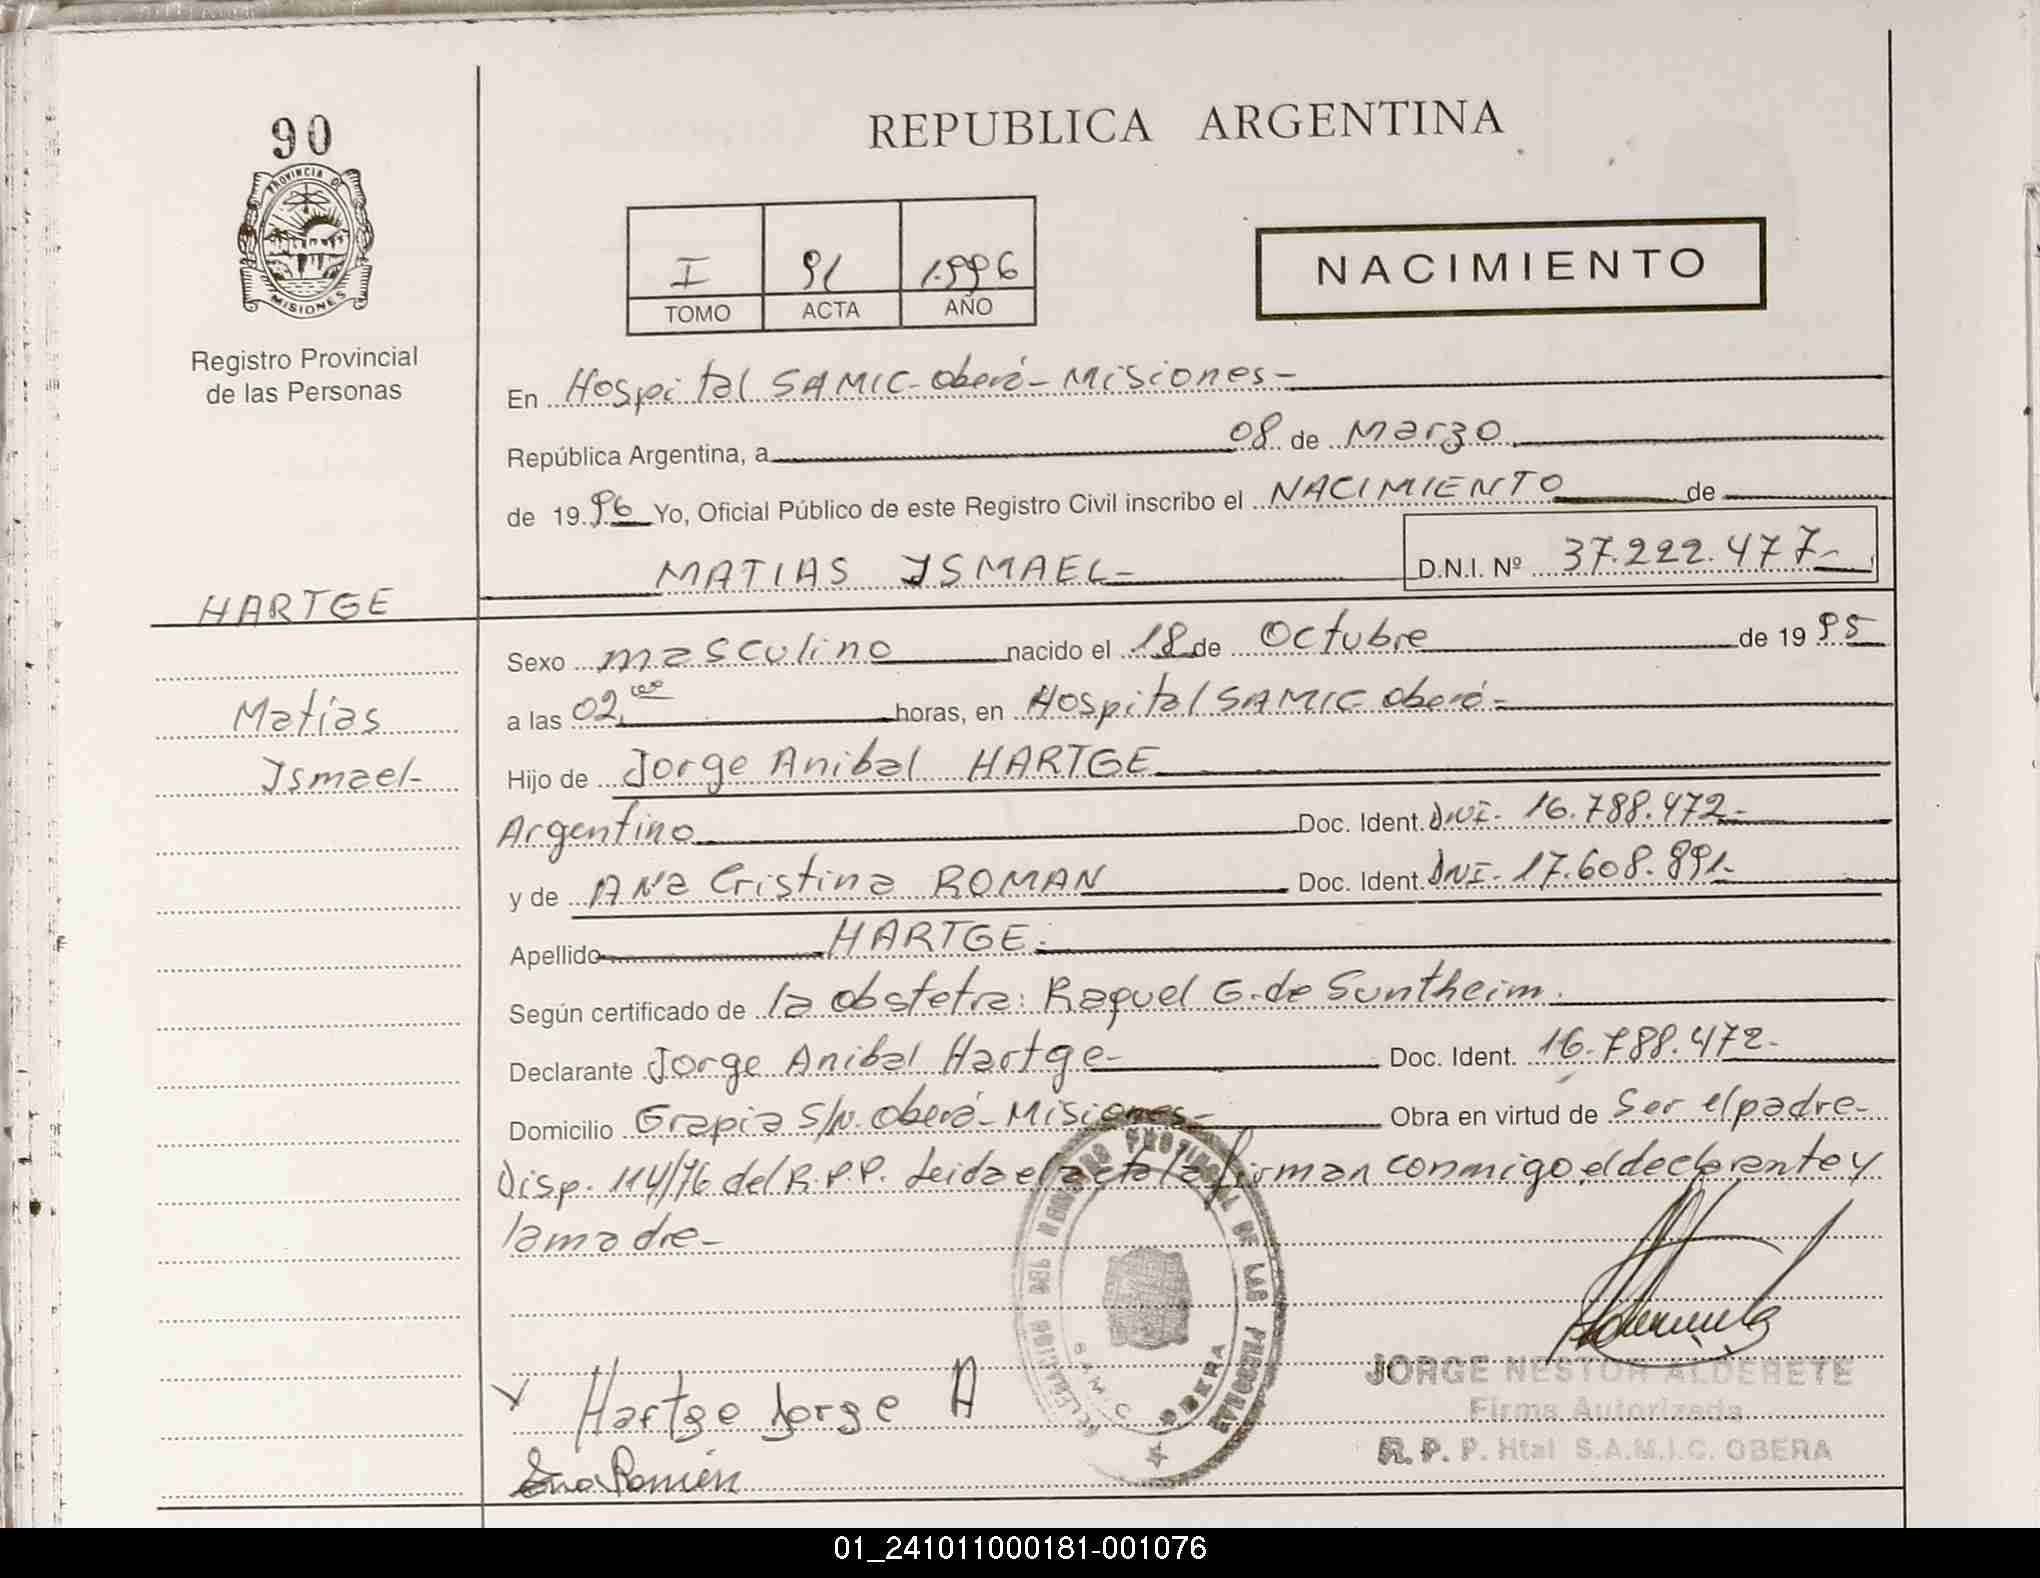 90
PROVINCIA DE
MISIONES
Registro Provincial
de las Personas
REPUBLICA ARGENTINA
I 91 1.996
TOMO ACTA AÑO
NACIMIENTO
En Hospital SAMIC-Oberá-Misiones-
República Argentina, a 08 de Marzo
de 1996 Yo, Oficial Público de este Registro Civil inscribo el NACIMIENTO de
MATIAS ISMAEL- D.N.I. Nº 37.222.477-
HARTGE
Matías
Ismael-
Sexo masculino nacido el 18 de Octubre de 1995
a las 02, horas, en Hospital SAMIC Oberá-
Hijo de Jorge Anibal HARTGE
Argentino Doc. Ident. DNI- 16.788.472-
y de ANA Cristina ROMAN Doc. Ident. DNI- 17.608.891-
Apellido HARTGE.
Según certificado de la obstetra: Raquel G. de Suntheim.
Declarante Jorge Anibal Hartge- Doc. Ident. 16.788.472-
Domicilio Grapia S/N. Oberá-Misiones- Obra en virtud de Ser el padre-
Disp. 114/76 del R.P.P. Leida el acta la firman conmigo, el declarante y
la madre-
Hartge Jorge A
Ana Román
PROVINCIAL DE LAS PERSONAS
OBERA
JORGE NESTOR ALDERETE
Firma Autorizada
R. P. P. Htal S.A.M.I.C. OBERA
01_241011000181-001076